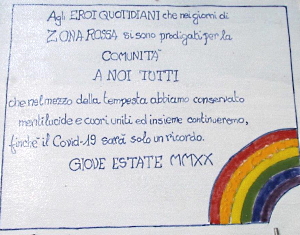 Agli EROI QUOTIDIANI che nei giorni di
ZONA ROSSA si sono prodigati per la
COMUNITA'
A NOI TUTTI
che nel mezzo della tempesta abbiamo conservato
menti lucide e cuori uniti ed insieme continueremo,
finchè il Covid-19 sarà solo un ricordo.
GIOVE ESTATE MMXX